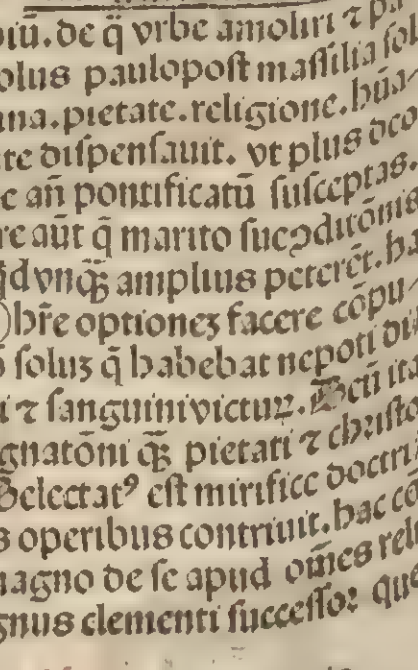 piū. de q̄ vrbe amoliri ⁊ pa
olus paulopoſt maſſilia ſol
na. pietate. religione. hūa⸗
te diſpenſauit. vt plus deo
e an̄ pontificatū ſuſceptas.
re aūt q̄ marito ſucↄditōnis
qdvnqꝫ amplius peterēt. ha
Ohr̄e optionez facere cōpu⸗
ſoluꝫ q̄ habebat nepoti diſ
i ⁊ ſanguini victuꝝ. Sctī ita
gnatōni qꝫ pietati ⁊ chꝛiſto
Selectatꝰ eſt mirifice doctri
s operibus contriuit. hac cō
nagno de ſe apud om̄es reli
gnus clementi ſucceſſoꝛ que